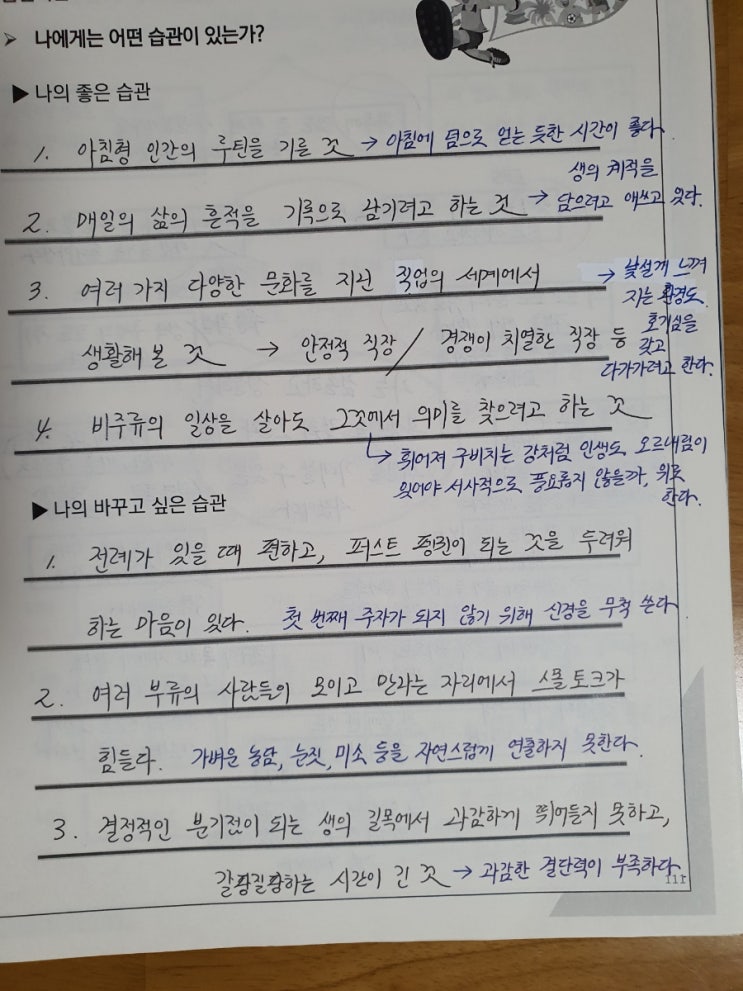 ➢ 나에게는 어떤 습관이 있는가?
▶ 나의 좋은 습관
1. 아침형 인간의 루틴을 기를 것 → 아침에 덤으로 얻는 듯한 시간이 좋다.
2. 매일의 삶의 흔적을 기록으로 남기려고 하는 것 → 생의 궤적을
담으려고 애쓰고 있다.
3. 여러 가지 다양한 문화를 지닌 직업의 세계에서
생활해 볼 것 → 안정적 직장 / 경쟁이 치열한 직장 등
→ 낯설게 느껴
지는 환경도
호기심을
갖고
다가가려고 한다.
4. 비주류의 일상을 살아도 그것에서 의미를 찾으려고 하는 것
↳ 휘어져 구비치는 강처럼 인생도 오르내림이
있어야 서사적으로 풍요롭지 않을까, 위로
한다.
▶ 나의 바꾸고 싶은 습관
1. 전례가 있을 때 편하고, 퍼스트 펭귄이 되는 것을 두려워
하는 마음이 있다. 첫 번째 주자가 되지 않기 위해 신경을 무척 쓴다.
2. 여러 부류의 사람들이 모이고 만나는 자리에서 스몰토크가
힘들다. 가벼운 농담, 눈짓, 미소 등을 자연스럽게 연출하지 못한다.
3. 결정적인 분기점이 되는 생의 길목에서 과감하게 뛰어들지 못하고,
갈팡질팡하는 시간이 긴 것 → 과감한 결단력이 부족하다.
111